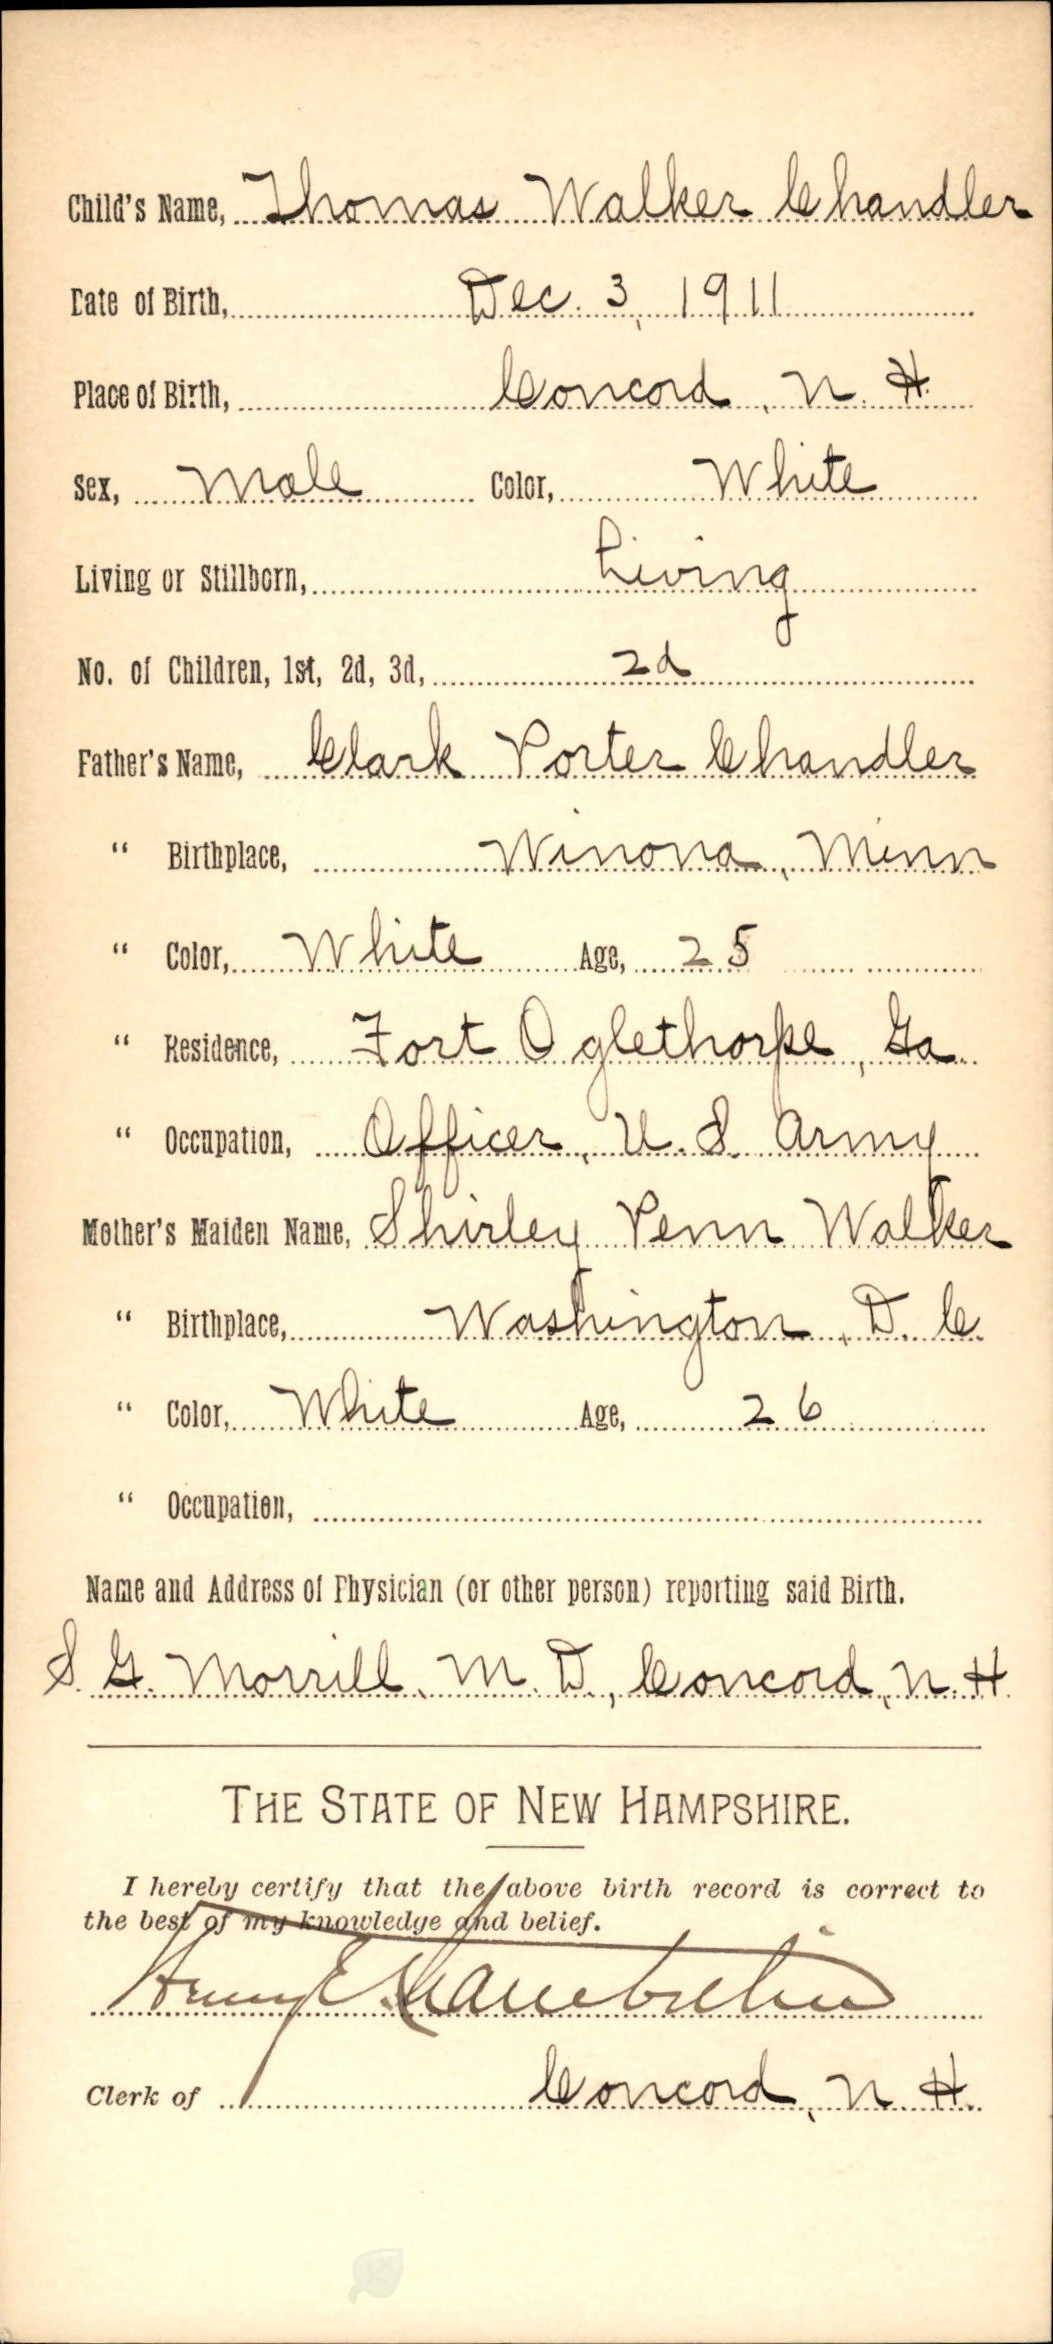 Child's Name, Thomas Walker Chandler
Date of Birth, Dec. 3, 1911
Place of Birth, Concord, N. H.
Sex, Male Color, White
Living or Stillborn, Living
No. of Children, 1st, 2d, 3d, 2d
Father's Name, Clark Porter Chandler
" Birthplace, Winona, Minn
" Color, White Age, 25
" Residence, Fort Oglethorpe, Ga.
" Occupation, Officer, U. S. Army
Mother's Maiden Name, Shirley Penn Walker
" Birthplace, Washington, D. C.
" Color, White Age, 26
" Occupation,
Name and Address of Physician (or other person) reporting said Birth.
S. G. Morrill, M. D., Concord, N. H.
THE STATE OF NEW HAMPSHIRE.
I hereby certify that the above birth record is correct to
the best of my knowledge and belief.
Henry E. Chamberlin
Clerk of Concord, N. H.